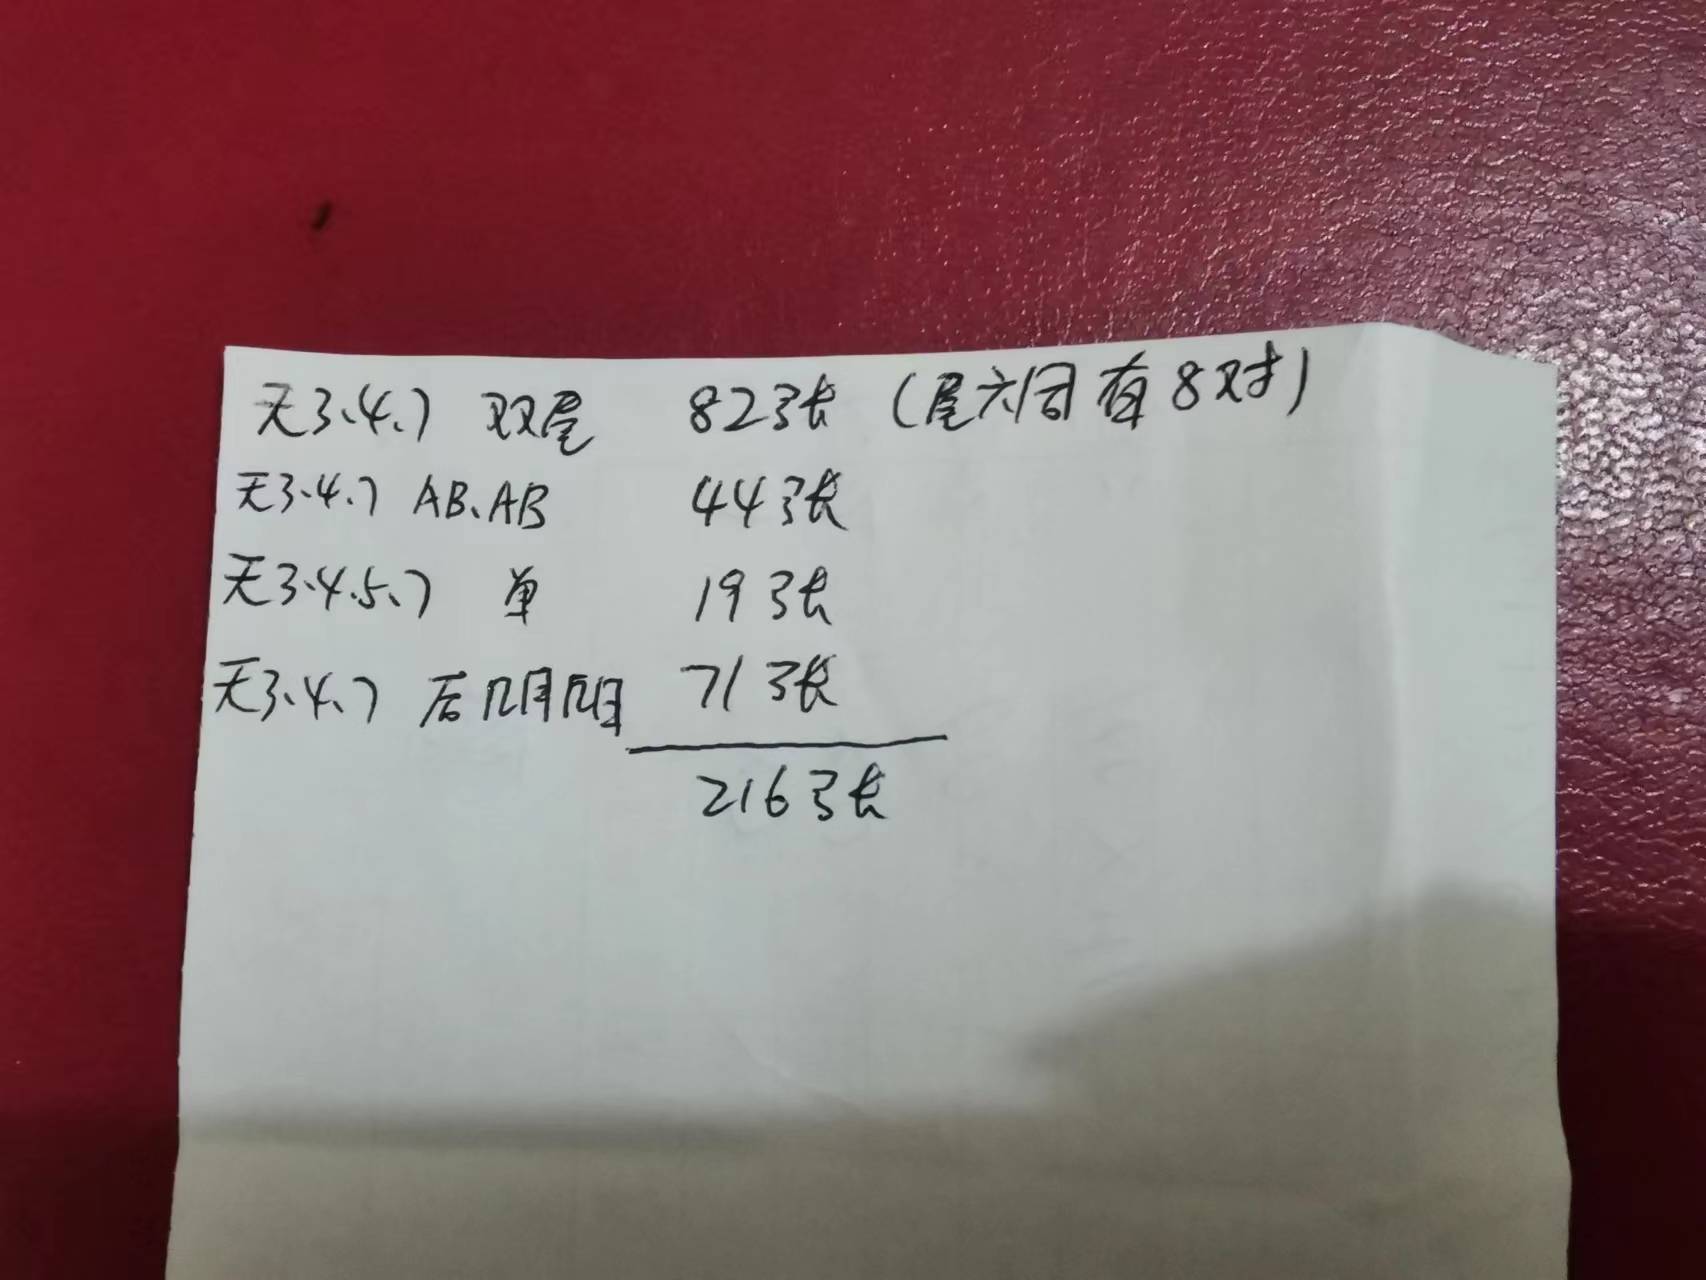 无3、4、7 双尾 82张 (尾六同有8对)
无3、4、7 AB、AB 44张
无3、4、5、7 单 19张
无3、4、7 后阴阳 71张
216张